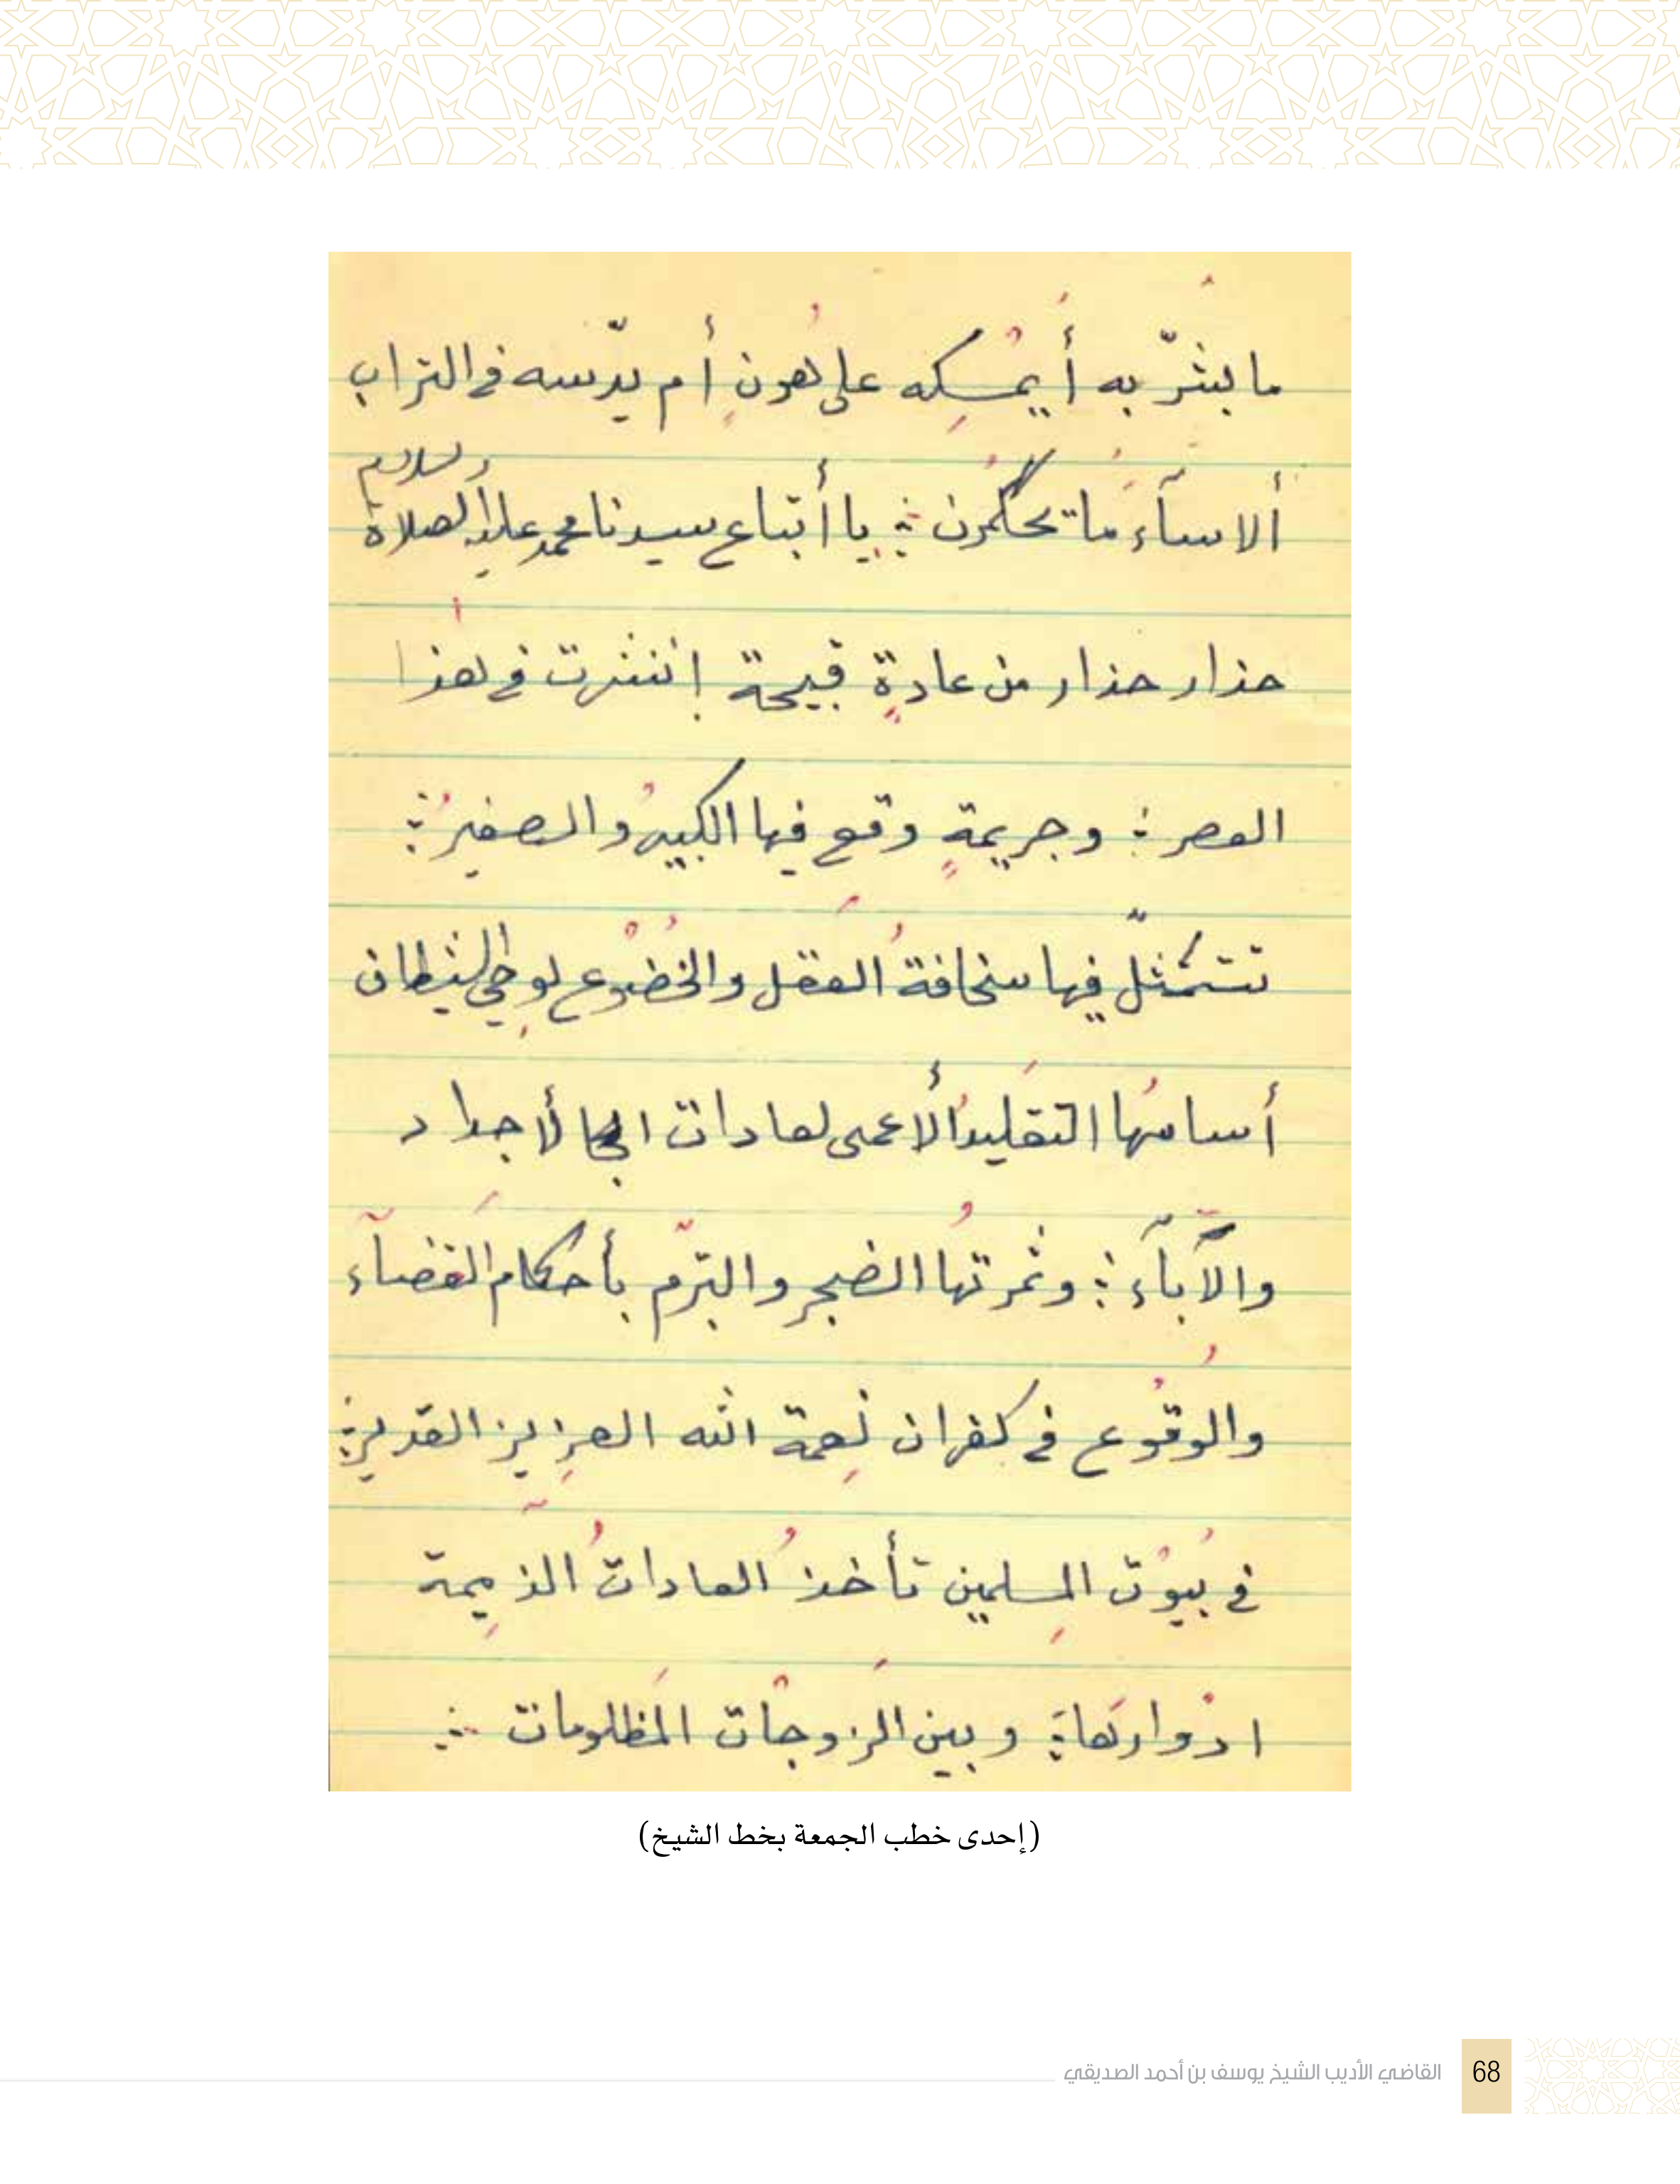 ما بُشّر به أَيُمْسِكه على هُونٍ أم يدّسه في التراب
ألا سآءَ مَا تحكُمون ؞ يا أتباع سيدنا محمد عليه الصلاة والسلام
حذار حذار من عادةٍ قبيحة إنتشرت في هٰذا
العصر : وجريمةٍ وقع فيها الكبيرُ والصغيرُ :
تتمثّل فيها سخافةُ العَقل والخُضوْع لوحِي الشيطان
أساسُها التقَليدُ الأعمى لعادات الأجداد
والآبآء : وثمرتُها الضجر والتبرّم بأحكام القَضآء
والوُقُوع في كفران نِعمة الله العزِيز القدير :
في بُيُوْت المسلِمين تأخذُ العاداتُ الذّمِيمة
ادْوارَها : وبين الزَوْجات المَظلومات ؞
(إحدى خطب الجمعة بخط الشيخ)
القاضي الأديب الشيخ يوسف بن أحمد الصديقي 68